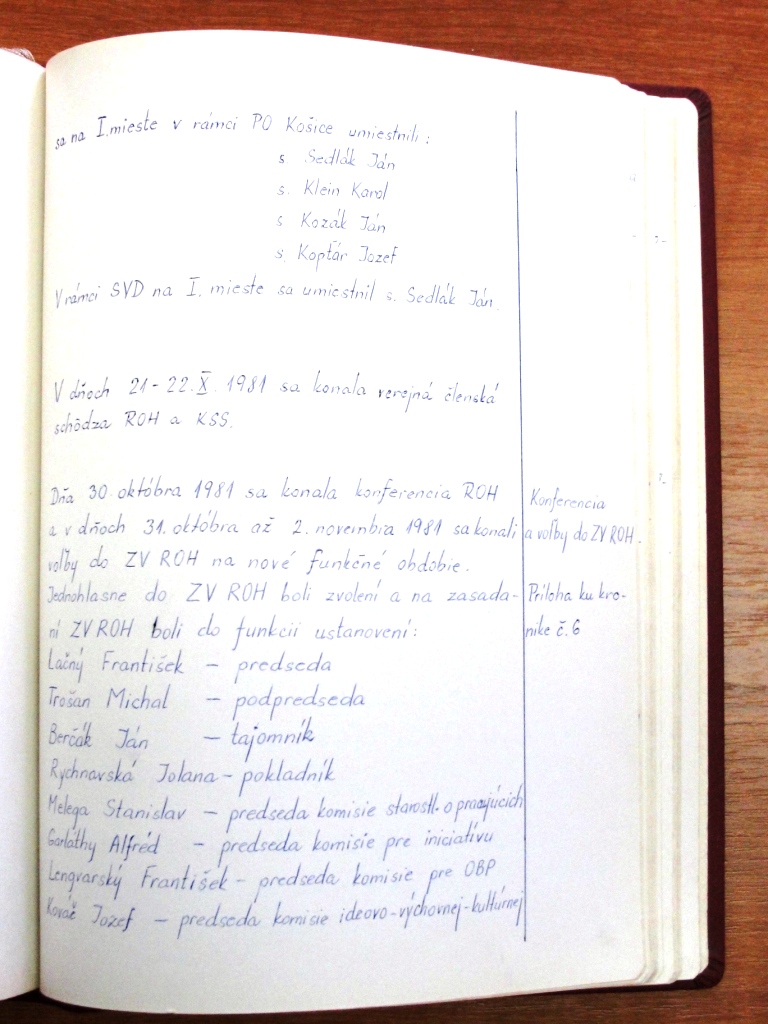 sa na I. mieste v rámci PO Košice umiestnili:
s Sedlák Ján
s. Klein Karol
s Kozák Ján
s. Koptár Jozef
V rámci SVD na I. mieste sa umiestnil s. Sedlák Ján.
V dňoch 21 - 22. X. 1981 sa konala verejná členská
schôdza ROH a KSS.
Dňa 30. októbra 1981 sa konala konferencia ROH
a v dňoch 31. októbra až 2. novembra 1981 sa konali
voľby do ZV ROH na nové funkčné obdobie.
Jednohlasne do ZV ROH boli zvolení a na zasada-
ní ZV ROH boli do funkcii ustanovení:
Lačný František - predseda
Trošan Michal - podpredseda
Berčák Ján - tajomník
Rychnavská Jolana - pokladník
Melega Stanislav - predseda komisie starostl. o pracujúcich
Garláthy Alfréd - predseda komisie pre iniciatívu
Lengvarský František - predseda komisie pre OBP
Kováč Jozef - predseda komisie ideovo-výchovnej-kultúrnej
Konferencia
a voľby do ZV ROH.
Príloha ku kro-
nike č. 6